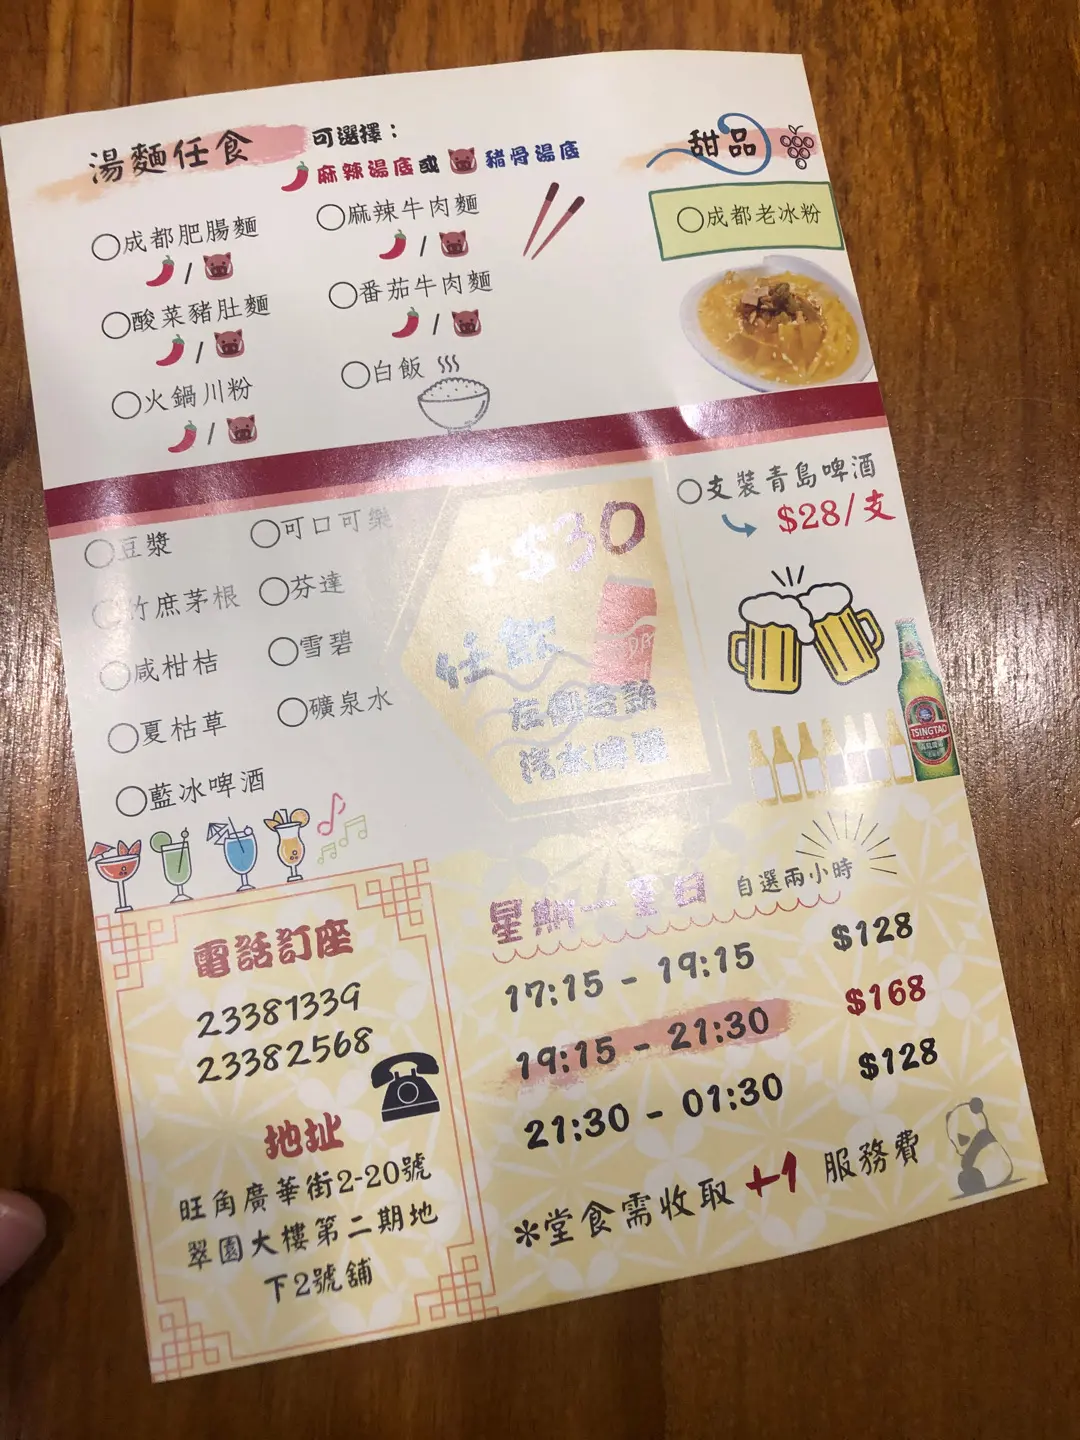 湯麵任食
可選擇：
麻辣湯底或 豬骨湯底
成都肥腸麵
/
酸菜豬肚麵
/
火鍋川粉
/
麻辣牛肉麵
/
番茄牛肉麵
/
白飯
甜品
成都老冰粉
豆漿
竹庶茅根
咸柑桔
夏枯草
藍冰啤酒
可口可樂
芬達
雪碧
礦泉水
+$30
任飲
汽水啤酒
支裝青島啤酒
$28/支
TSINGTAO
電話訂座
23381339
23382568
地址
旺角廣華街2-20號
翠園大樓第二期地
下2號舖
星期一至日 自選兩小時
17:15 - 19:15 $128
19:15 - 21:30 $168
21:30 - 01:30 $128
*堂食需收取 +1 服務費